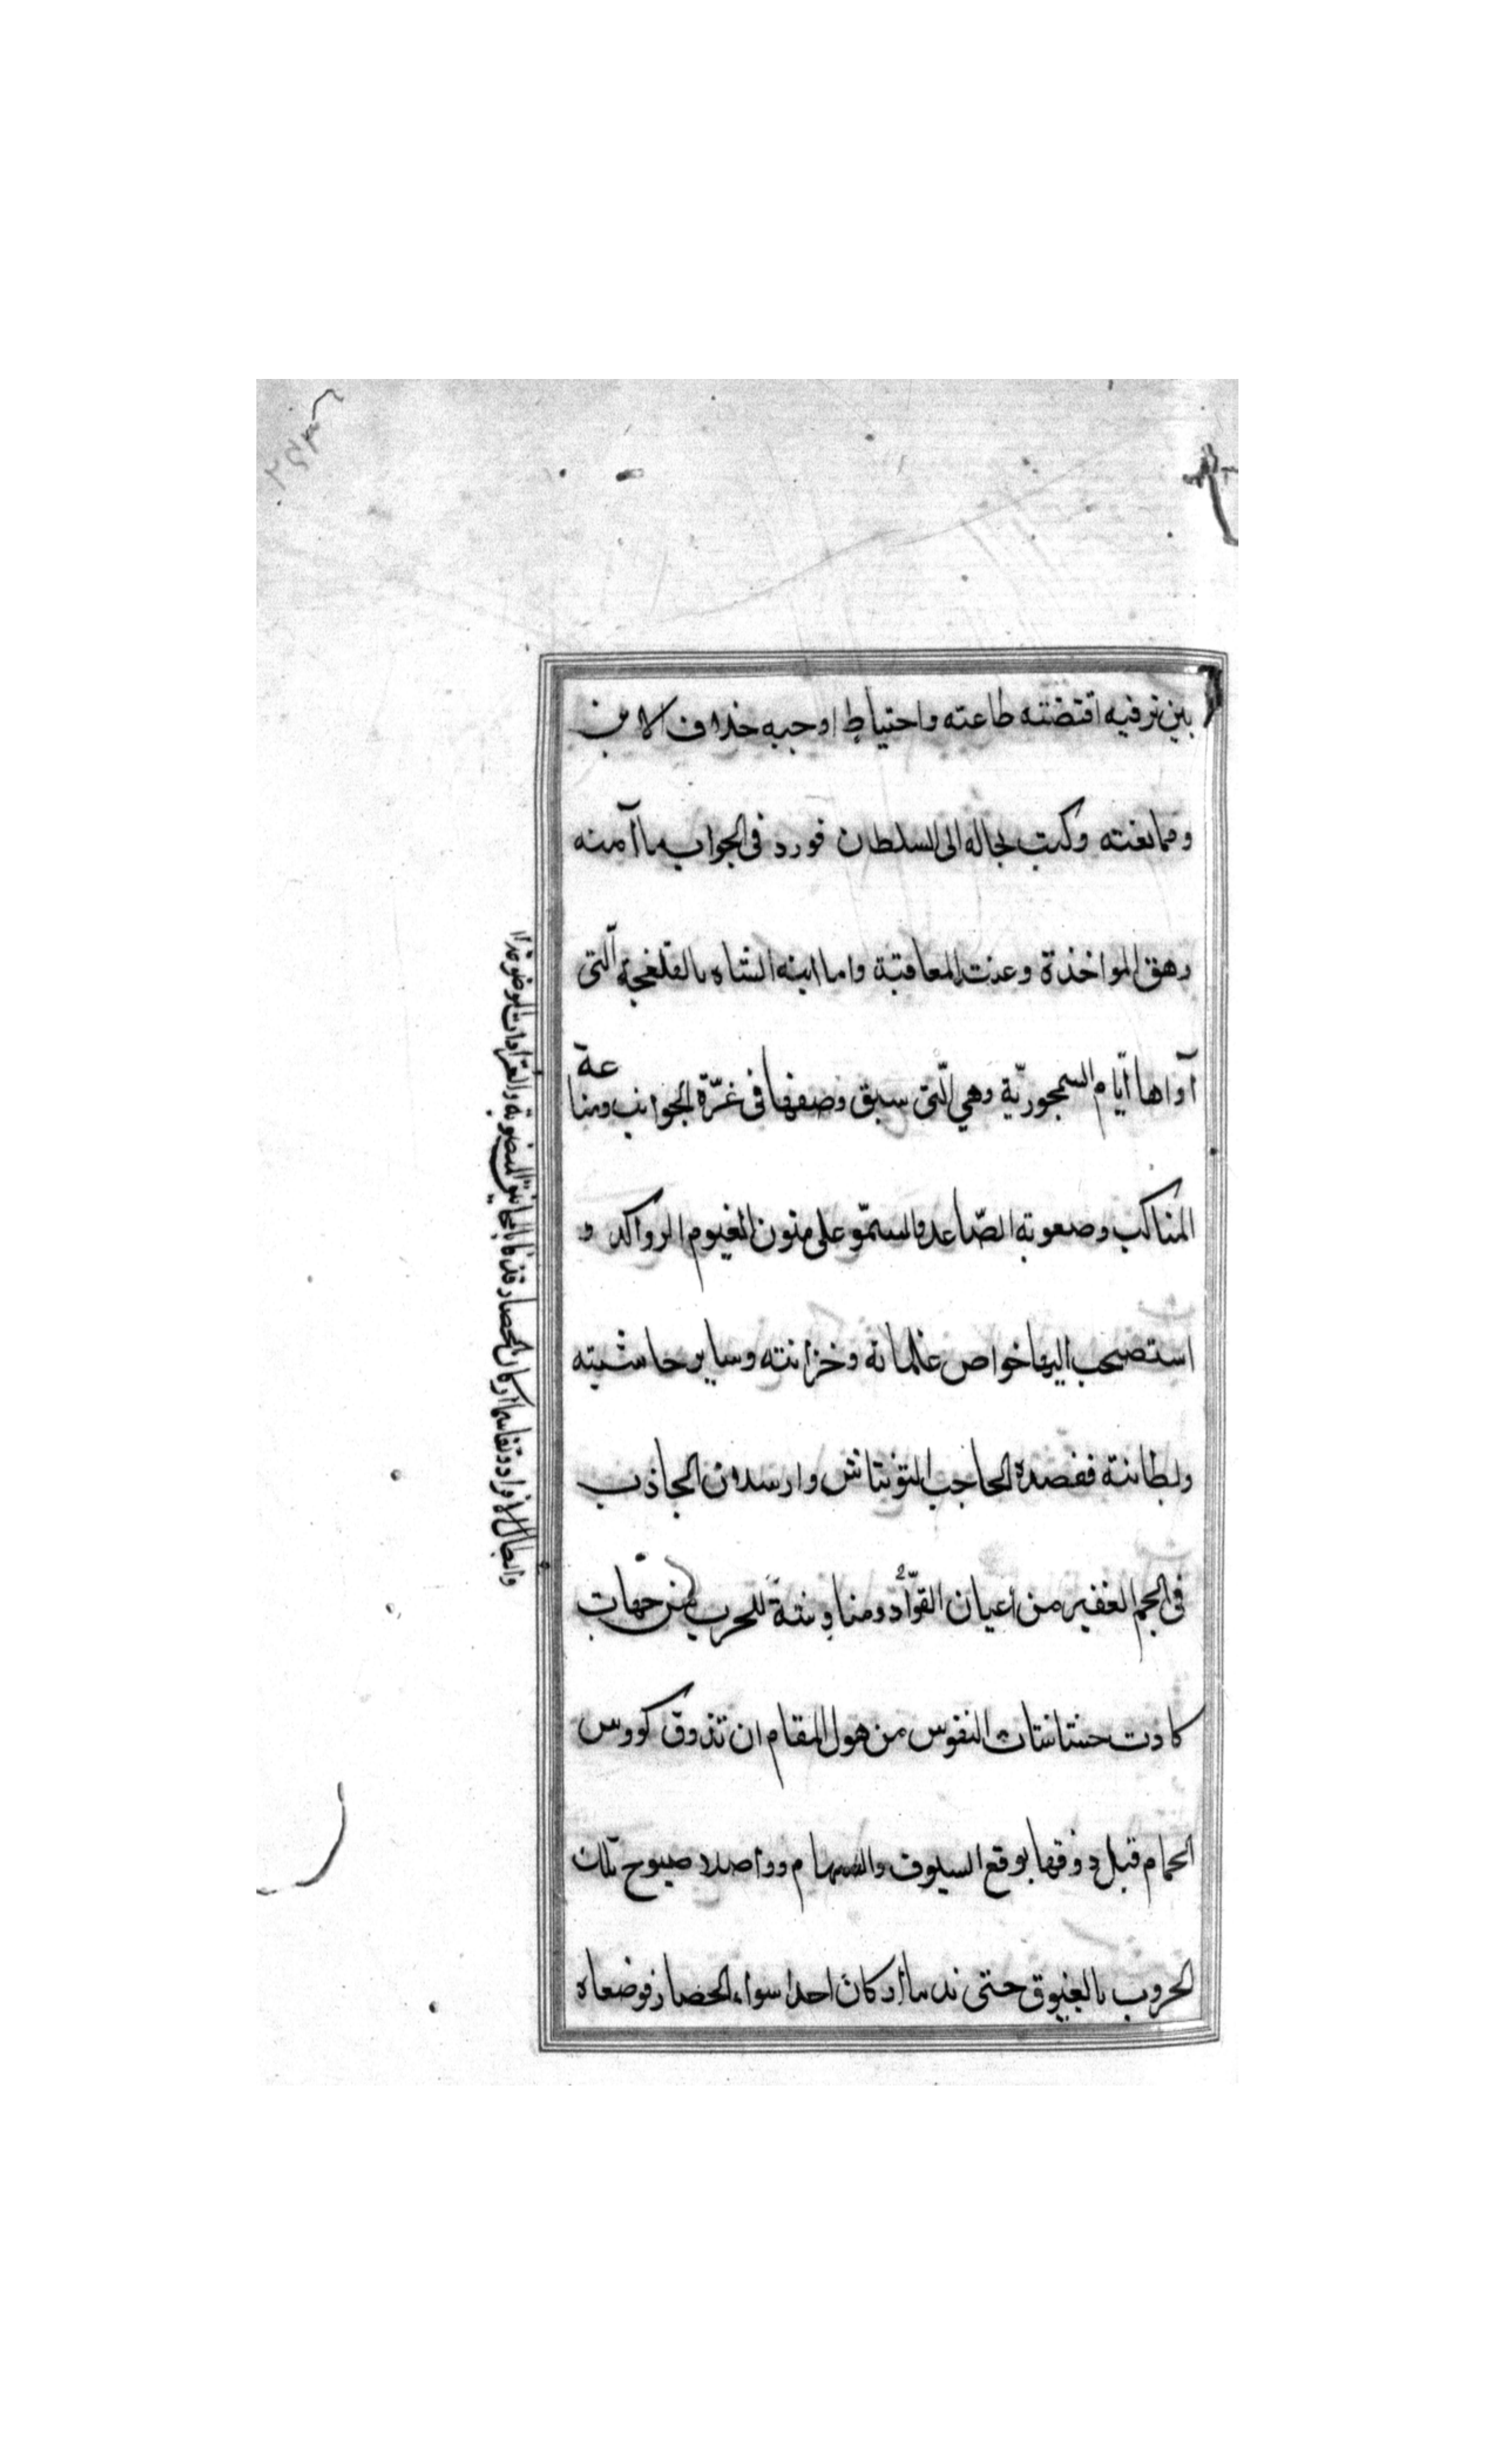 بين ترفيه اقتضته طاعته واحتياط اوجبه خلاف الابن
وممانعته وكتب بحاله الى السلطان فورد فى الجواب ما آمنه
رهق المواخذة وعنت المعاقبة واما ابنه الشاه بالقلعة التى
آواها ايّام السمجوريّة وهي الّتى سبق وصفها فى غرّة الجوانب ومناعة
المناكب وصعوبة الصّاعد والسموّ على متون الغيوم الرواكد و
استصحب اليها خواص غلمانه وخزانته وساير حاشيته
وبطانته فقصده الحاجب التونتاش وارسلان الجاذب
فى الجم الغفير من اعيان القوّاد ومناوشة للحرب من جهات
كادت حشاشات النفوس من هول المقام ان تذوق كووس
الحمام قبل ذوقها بوقع السيوف والسهام وواصلا صبوح تلك
الحروب بالغبوق حتى ندما اركان احد اسواء الحصار فوضعاه
قذفا بالمجانيق المنصوبة والعرّادات الموضوعة